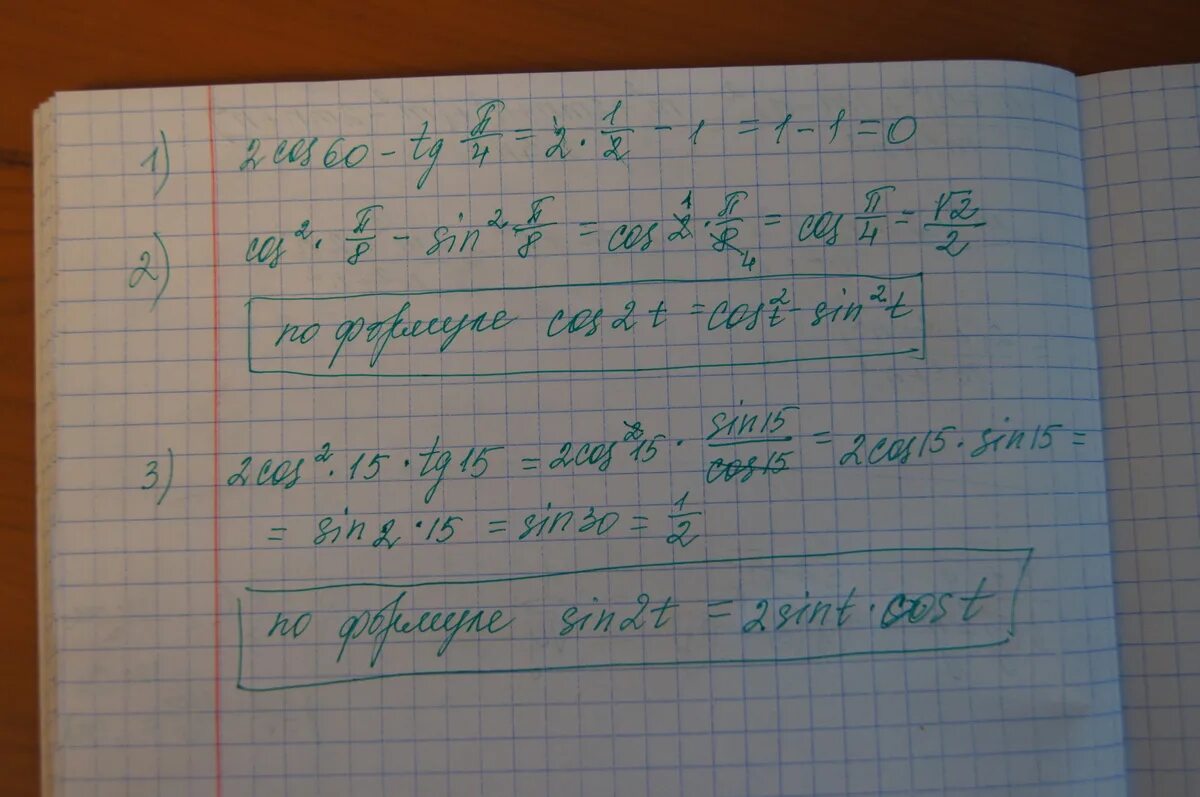 1) 2cos60 - tg π/4 = 2 · 1/2 - 1 = 1 - 1 = 0
2) cos² · π/8 - sin² π/8 = cos 2 · π/8 = cos π/4 = √2/2
по формуле cos2t = cos²t - sin²t
3) 2cos² · 15 · tg15 = 2cos²15 · sin15/cos15 = 2cos15 · sin15 =
= sin2 · 15 = sin30 = 1/2
по формуле sin2t = 2sint · cost